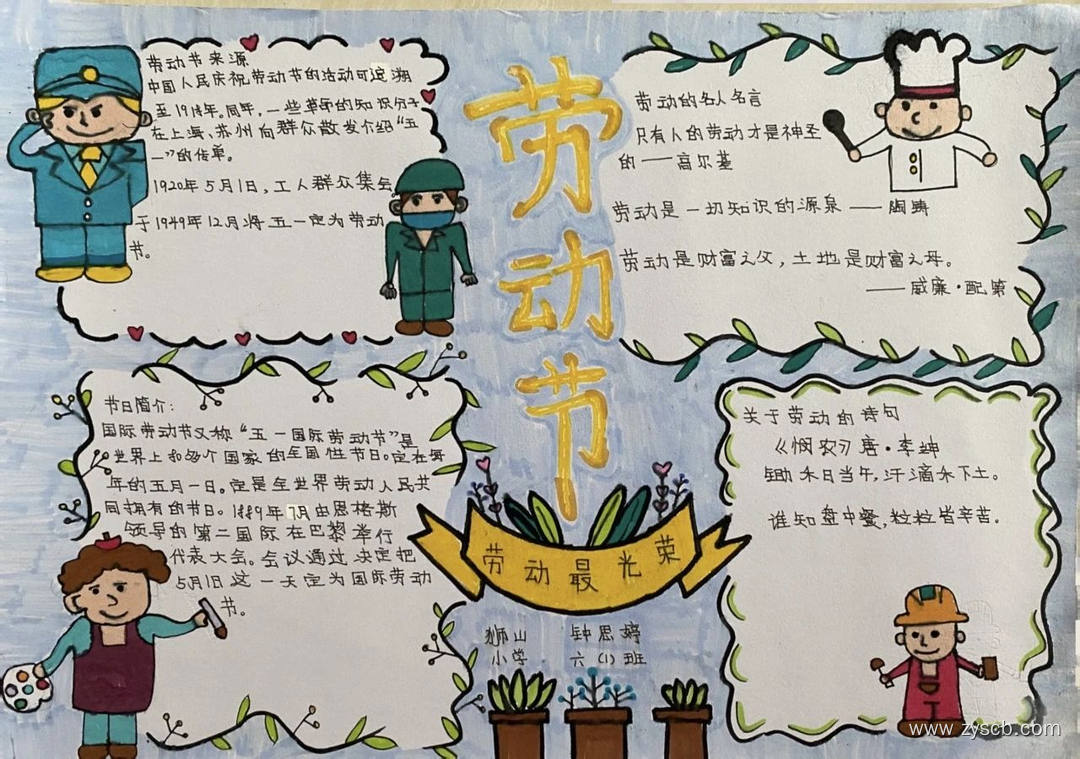 劳动节来源
中国人民庆祝劳动节的活动可追溯
至1918年。同年，一些革命的知识分子
在上海、苏州向群众散发介绍“五
一”的传单。
1920年5月1日，工人群众集会。
于1949年12月将五一定为劳动
节。
劳动节
劳动的名人名言
只有人的劳动才是神圣
的——高尔基
劳动是一切知识的源泉——陶铸
劳动是财富之父，土地是财富之母。
——威廉·配第
节日简介：
国际劳动节又称“五一国际劳动节”是
世界上80多个国家的全国性节日。定在每
年的五月一日。它是全世界劳动人民共
同拥有的节日。1889年7月由恩格斯
领导的第二国际在巴黎举行
代表大会。会议通过决定把
5月1日这一天定为国际劳动
节。
劳动最光荣
狮山 钟思婷
小学 六（1）班
关于劳动的诗句
《悯农》唐·李绅
锄禾日当午，汗滴禾下土。
谁知盘中餐，粒粒皆辛苦。
www.zyscb.com